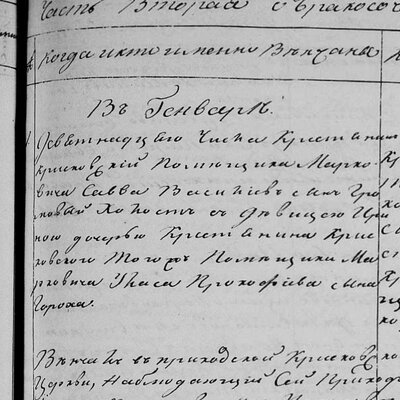 Часть Вторая о бракосоч
Когда и кто именно Вѣнчаны
Въ Генварѣ.
1 Девятнадцаго Числа Крестьянин
крисковскій Помѣщика Марко-
вича Савва Васильевъ сынъ Гро-
Холостъ съ дѣвицею Ири-
ною дочерью Крестьянина Крис-
ковского того жъ Помѣщика Ма-
рковича Уласа Прокофіева сына
Гороха.
Вѣнчалъ въ приходской Крисков
Церкви, Наблюдающій Сей Приход